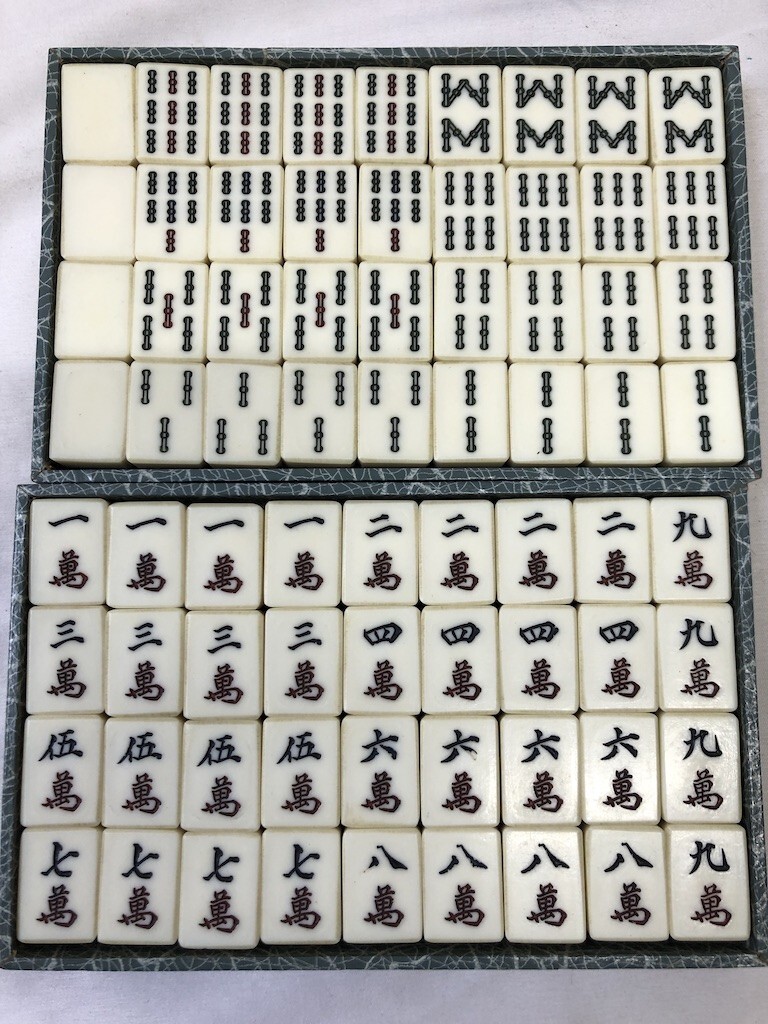 一 一 一 一 二 二 二 二 九
萬 萬 萬 萬 萬 萬 萬 萬 萬
三 三 三 三 四 四 四 四 九
萬 萬 萬 萬 萬 萬 萬 萬 萬
伍 伍 伍 伍 六 六 六 六 九
萬 萬 萬 萬 萬 萬 萬 萬 萬
七 七 七 七 八 八 八 八 九
萬 萬 萬 萬 萬 萬 萬 萬 萬